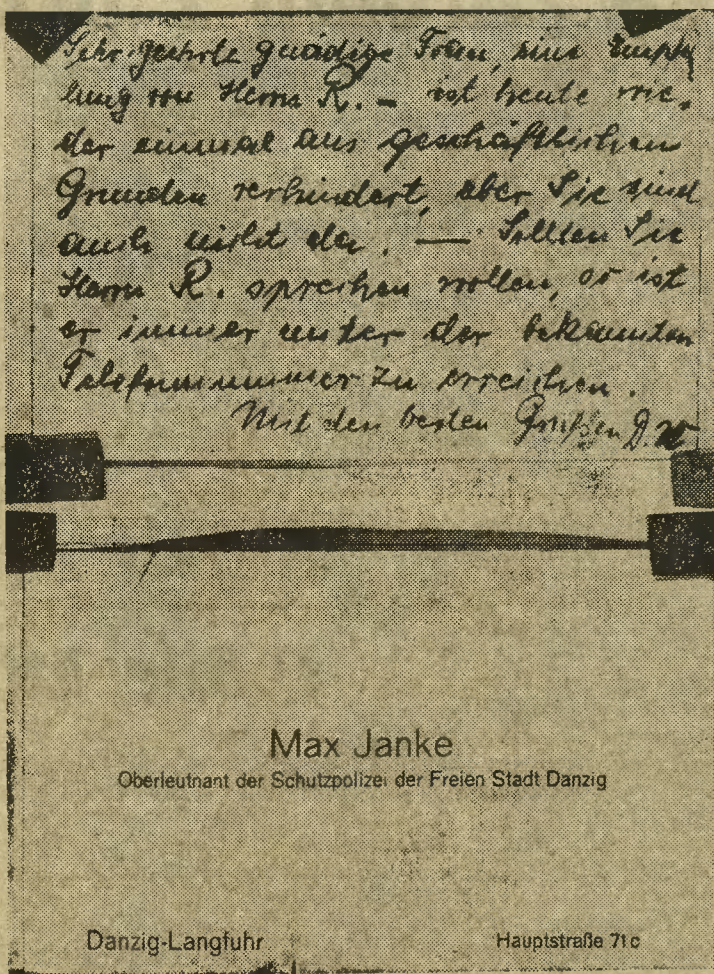 Sehr geehrte gnädige Frau, eine Empfeh
lung von Herrn R. – ist heute wie-
der einmal aus geschäftlichen
Grunden verhindert, aber Sie sind
auch nicht da. — Sollten Sie
Herrn R. sprechen wollen, so ist
er immer unter der bekannten
Telefonnummer zu erreichen.
Mit den besten Grüßen
Max Janke
Oberleutnant der Schutzpolizei der Freien Stadt Danzig
Danzig-Langfuhr
Hauptstraße 71c